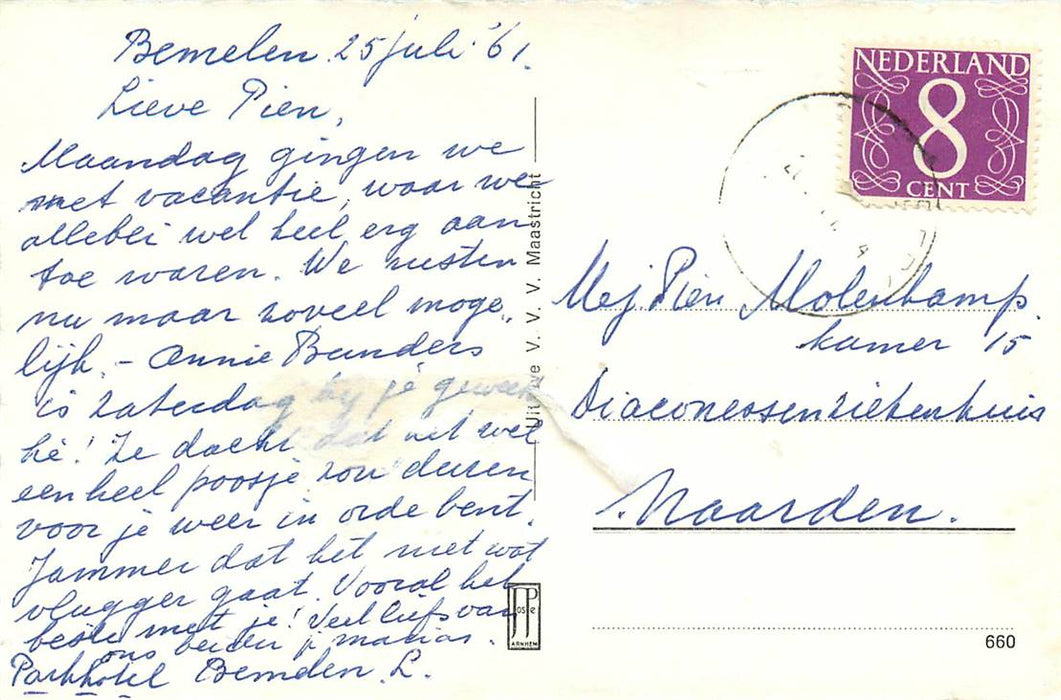 Bemelen 25 juli '61.
Lieve Pien,
Maandag gingen we
met vacantie, waar we
allebei wel heel erg aan
toe waren. We rusten
nu maar zoveel moge„
lijk. - Annie Beunders
is zaterdag bij je geweest
hè! Ze dacht dat het wel
een heel poosje zou duren
voor je weer in orde bent.
Jammer dat het niet wat
vlugger gaat. Vooral het
beste met je! Veel liefs van
ons beiden
Parkhotel Bemelen L.
Uitgave V. V. V. Maastricht
JosPe
ARNHEM
NEDERLAND
8
CENT
Mej. Pien Molenkamp.
kamer 15
Diaconessenziekenhuis
Naarden.
660